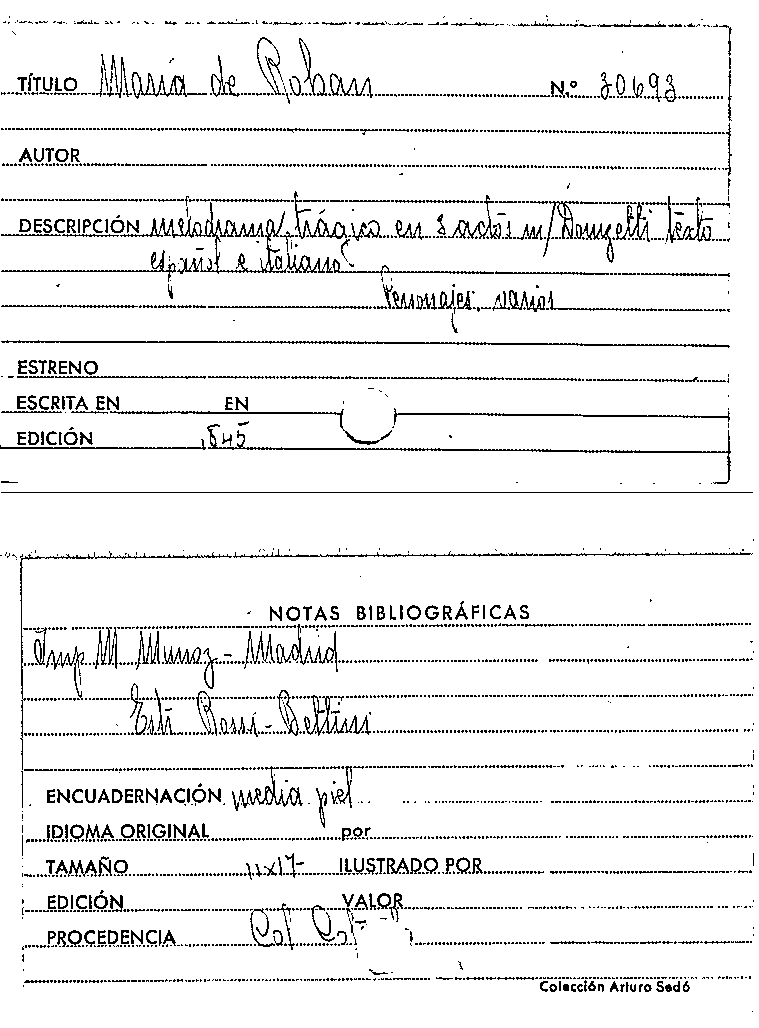 TÍTULO María de Rohan N.º 30693
AUTOR
DESCRIPCIÓN melodrama trágico en 3 actos m/ Donizetti texto
español e italiano
Personajes, varios
ESTRENO
ESCRITA EN EN
EDICIÓN 1845
NOTAS BIBLIOGRÁFICAS
Imp M Munoz - Madrid
Est Rossi - Bettini
ENCUADERNACIÓN media piel
IDIOMA ORIGINAL por
TAMAÑO 11x17 ILUSTRADO POR
EDICIÓN VALOR
PROCEDENCIA Col
Colección Arturo Sedó